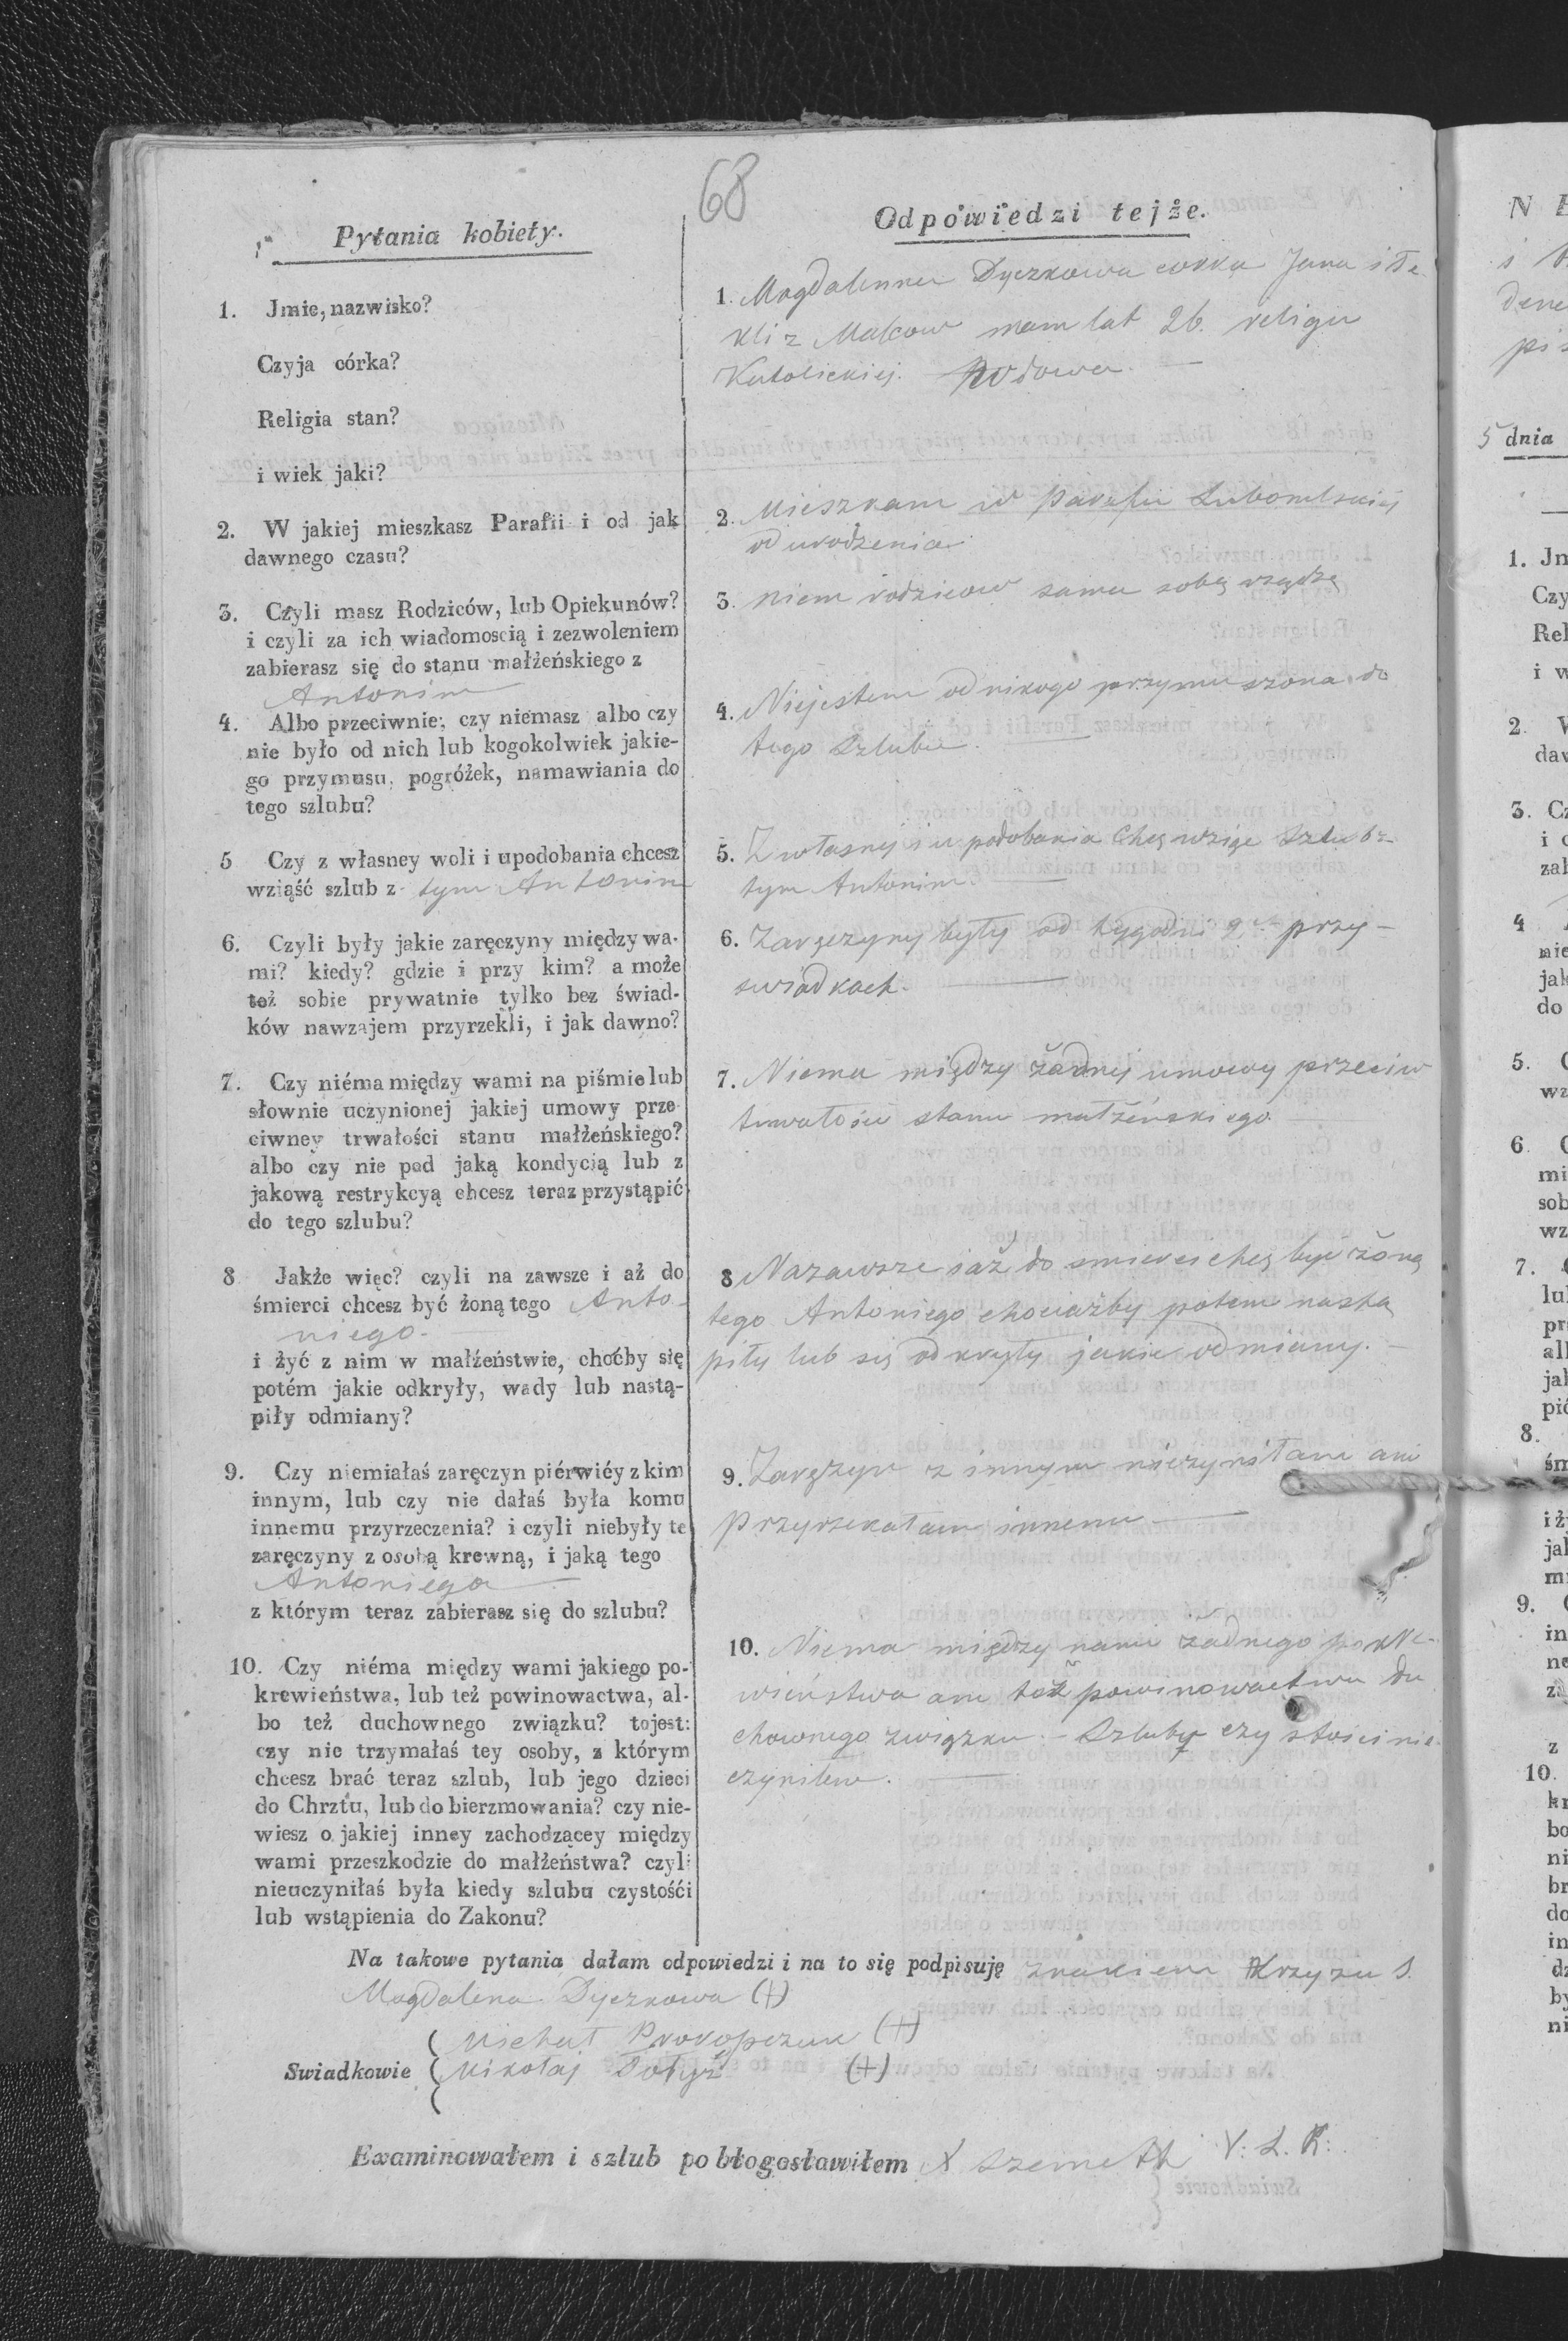 68
Pytania kobiety.
1. Jmie, nazwisko?
Czyja córka?
Religia stan?
i wiek jaki?
2. W jakiej mieszkasz Parafii i od jak
dawnego czasu?
3. Czyli masz Rodziców, lub Opiekunów?
i czyli za ich wiadomoscią i zezwoleniem
zabierasz się do stanu małżeńskiego z
Antonim
4. Albo przeciwnie; czy niemasz albo czy
nie było od nich lub kogokolwiek jakie-
go przymusu, pogróżek, namawiania do
tego szlubu?
5 Czy z własney woli i upodobania chcesz
wziąść szlub z tym Antonim
6. Czyli były jakie zaręczyny między wa-
mi? kiedy? gdzie i przy kim? a może
też sobie prywatnie tylko bez świad-
ków nawzajem przyrzekli, i jak dawno?
7. Czy niéma między wami na piśmie lub
słownie uczynionej jakiej umowy prze
ciwney trwałości stanu małżeńskiego?
albo czy nie pod jaką kondycią lub z
jakową restrykcyą chcesz teraz przystąpić
do tego szlubu?
8 Jakże więc? czyli na zawsze i aż do
śmierci chcesz być żoną tego Anto-
niego.
i żyć z nim w małżeństwie, choćby się
potém jakie odkryły, wady lub nastą-
piły odmiany?
9. Czy niemiałaś zaręczyn piérwiéy z kim
innym, lub czy nie dałaś była komu
innemu przyrzeczenia? i czyli niebyły te
zaręczyny z osobą krewną, i jaką tego
Antoniego
z którym teraz zabierasz się do szlubu?
10. Czy niéma między wami jakiego po-
krewieństwa, lub też powinowactwa, al-
bo też duchownego związku? tojest:
czy nie trzymałaś tey osoby, z którym
chcesz brać teraz szlub, lub jego dzieci
do Chrztu, lub do bierzmowania? czy nie-
wiesz o jakiej inney zachodzącey między
wami przeszkodzie do małżeństwa? czyli
nieuczyniłaś była kiedy szlubu czystośći
lub wstąpienia do Zakonu?
Odpowiedzi tejże.
1. Magdalenna Dyczkowa corka Jana i Te
kli z Malcow mam lat 26. religii
Katolickiej. Wdowa.
2. Mieszkam w parafii Lubomlskiej
od urodzenia
3. niem rodzicow sama sobą rządzę
4. Niejestem od nikogo przymuszona do
tego Szlubu.
5. Z własnej i upodobania Chcę wziąc Szlub z
tym Antonim.
6. Zaręczyny byty od tygodni 2 przy-
swiadkach.
7. Niema między żadnej umowy przeciw
trwałości stanu małżeńskiego.
8 Nazawsze i aż do smierci chcę byc żoną
tego Antoniego chociażby potem nastą
piły lub się odkryły jakie odmiany.
9. Zaręczyn z innym nieczyniłam ani
przyrzekałam innemu
10. Niema między nami żadnego pokre-
wieństwa ani też powinowactwa du
chownego związku. - Szluby czystości nie
czyniłem.
Na takowe pytania dałam odpowiedzi i na to się podpisuję znakiem Krzyzu S.
Magdalena Dyczkowa (+)
Swiadkowie
Michał Prokopczuk (+)
Mikołaj (+)
Examinowałem i szlub pobłogosławiłem X Szemeth V: L. K:
N
5 dnia
1. Jm
Czy
Rel
i w
2.
daw
3. Cz
i c
zab
4
nie
jak
do
5. C
wz
6. C
mi
sob
wz
7.
lu
prz
alb
jak
pić
8.
śm
i ż
jak
mi
9.
in
ne
za
z
10.
kr
bo
ni
br
do
in
dz
by
ni